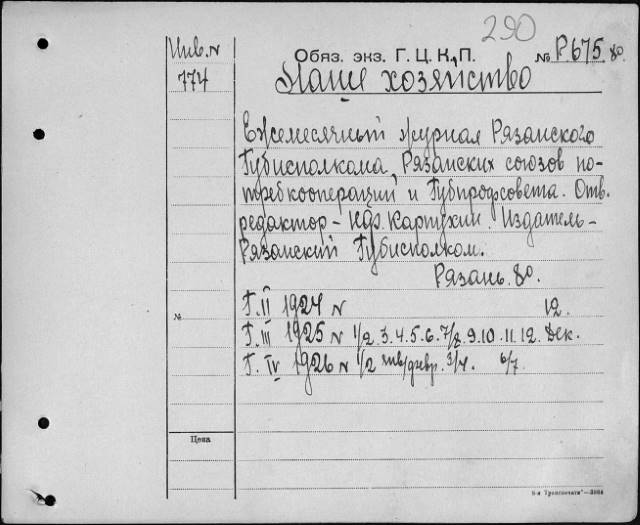 290
Инв. N
774
Обяз. экз. Г. Ц. К. П.
№ Р675 80.
Наше хозяйство
Ежемесячный журнал Рязанского
Губисполкома, Рязанских союзов по-
требкооперации и Губпрофсовета. Отв.
редактор – Картухин. Издатель –
Рязанский Губисполком.
Рязань. 80.
Г. II 1924 N 12.
№
Г. III 1925 N 1/2 3. 4. 5. 6. 7/8. 9. 10. 11. 12. Дек.
Г. IV 1926 N 1/2 янв/февр. 3/4. 6/7.
Цена